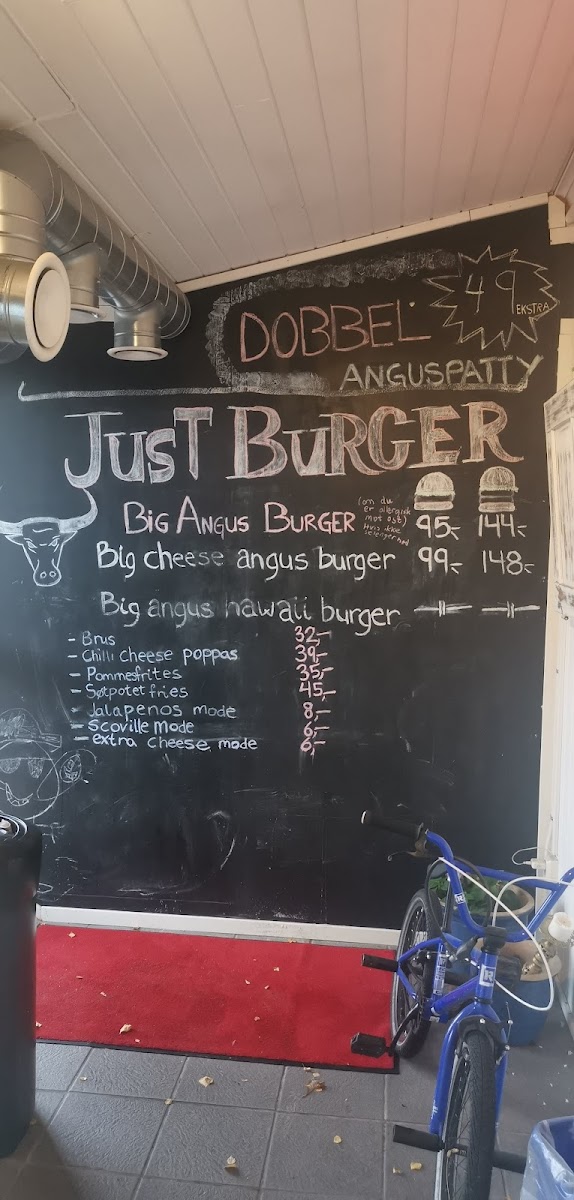 49
EKSTRA
DOBBEL
ANGUSPATTY
JUST BURGER
BIG ANGUS BURGER (om du er allergisk mot ost) 95,- 144,-
Big cheese angus burger 99,- 148,-
Big angus hawaii burger -||- -||-
- Brus 32,-
- Chilli cheese poppas 39,-
- Pommesfrites 35,-
- Søtpotet fries 45,-
- Jalapenos mode 8,-
- Scoville mode 6,-
- extra cheese mode 6,-